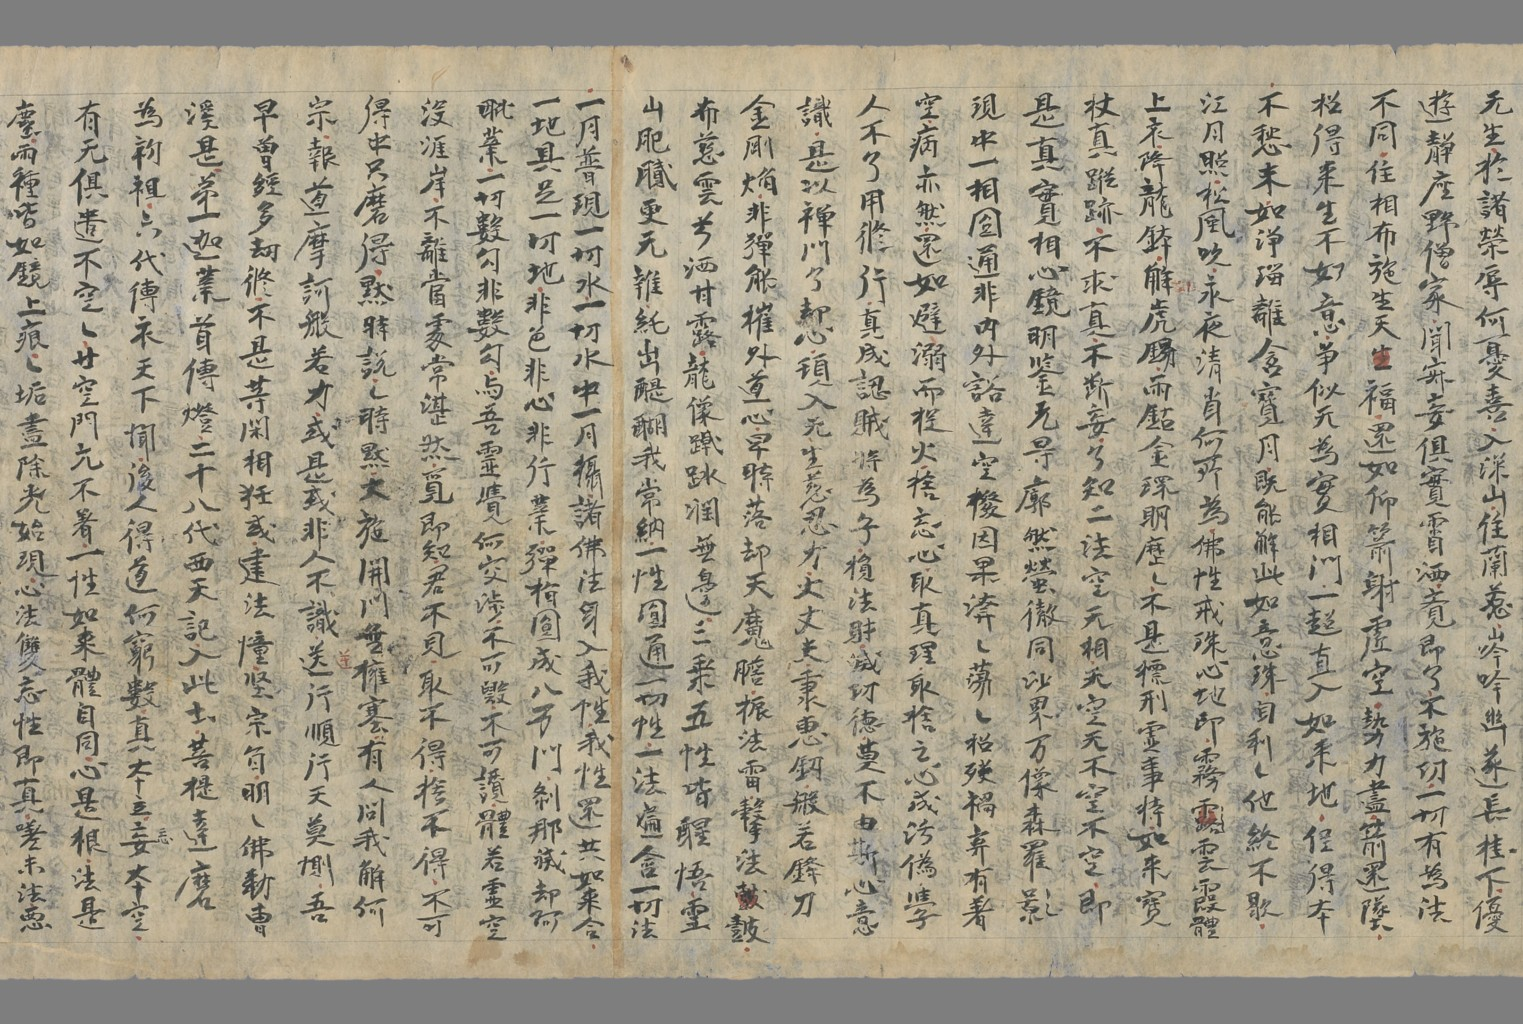 无生於諸榮辱何憂喜入深山住蘭若山岑吟幽邃長桂下優
遊靜座野僧家閴寂安俱實霄洒覺即了不施功一切有為法
不同住相布施生天生福還如仰箭射虛空勢力盡箭還墜
招得来生不如意爭似无為實相門一超直入如来地但得本
不愁末如淨瑠離含寶月既能解此如意珠自利〻他終不歇
江月照松風吹永夜清肖何所為佛性戒珠心地印霧露雲霞體
上衣降龍鉢解虎錫兩鈷金環明歷〻不是標刑虛事持如来寶
杖真蹤跡不求真不斷妄了知二法空无相无空无不空不空即
是真實相心鏡明鉴无㝵廓然瑩徹同沙界万像森羅影
現中一相圓通非內外豁達空撥因果漭〻蕩〻招殃禍弃有著
空病亦然還如避溺而投火捨忘心取真理取捨之心成污偽斈
人不了用修行真成認賊将為子損法財滅功德莫不由斯心意
識是以禅门了却心頓入无生慈忍力丈丈夫秉惠釰般若鋒刀
金剛焰非彈能摧外道心早時落却天魔膽振法雷擊法鼓鼓
布慈雲兮洒甘露龍像蹴踏潤無邊三乘五性皆醒悟雪
山肥膩更无雜純出醍醐我常納一性圓通一切性一法遍含一切法
一月普現一切水一切水中一月攝諸佛法身入我性我性還共如来合
一地具足一切地非色非心非行業彈指圓成八万門刹那滅却阿
毗業一切數勾非數勾与吾靈覺何交涉不可毀不可讚體若虛空
沒涯岸不離當處常湛然覓即知君不見取不得捨不得不可
得中只麼得默時說〻時默大施開门無擁塞有人問我解何
宗報道摩訶般若力或是或非人不識送逆行順行天莫惻吾
早曾經多劫修不是等閑相狂或建法憧堅宗旨明〻佛勑曹
溪是第一迦葉首傳燈二十八代西天記入此土菩提達磨
為初祖六代傳衣天下聞後人得道何窮數真本立妄本空
有无俱遣不空〻廿空門元不著一性如来體自同心是根法是
塵兩種皆如鏡上痕〻垢盡除光始現心法雙忘性即真嗟末法惡